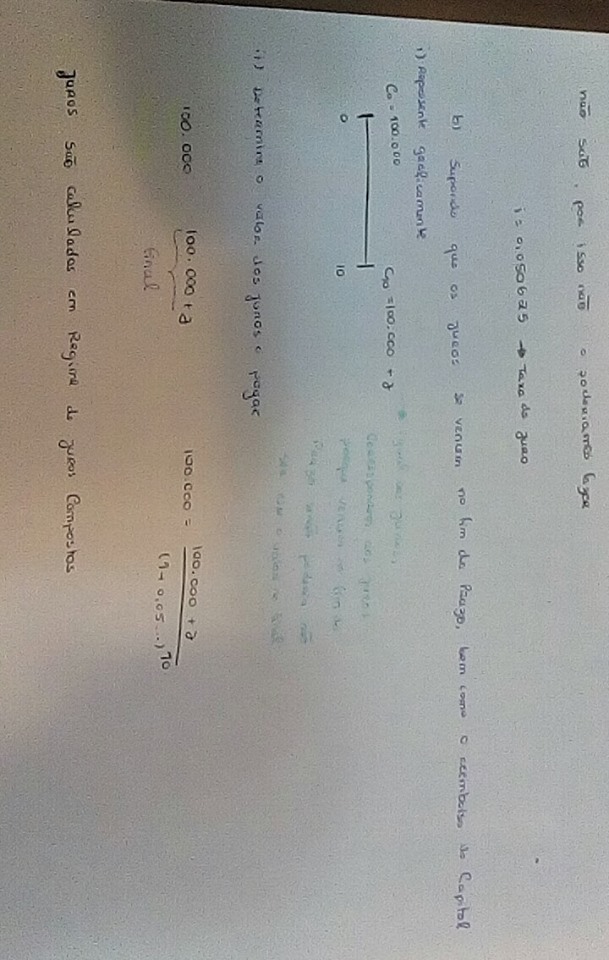 não são, por isso não o poderiamos fazer
i = 0,050625 → Taxa de juro
b) Supondo que os juros se vencem no fim do Prazo, bem como o reembolso do Capital
i) Represente graficamente
C0 = 100.000 C10 = 100.000 + J
0 10
igual aos juros,
Correspondem aos juros
porque vencem no fim do
Prazo senão poderia não
ser esse o valor no final
ii) Determine o valor dos juros a pagar
100.000 100.000 + J 100.000 = 100.000 + J
final (1+ 0,05...)^10
Juros são calculados em Regime de juros Compostos